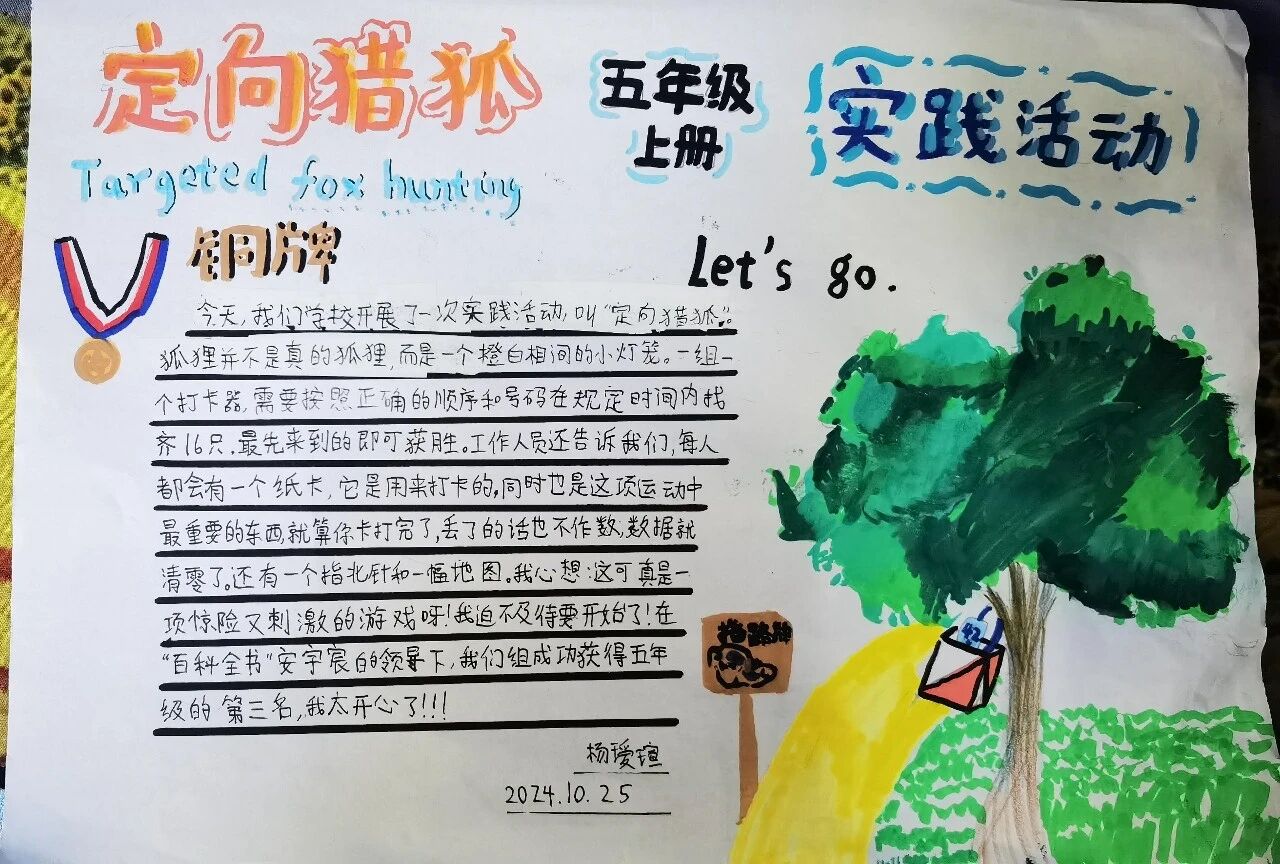 定向猎狐
五年级
上册
实践活动
Targeted fox hunting
铜牌
Let's go.
今天,我们学校开展了一次实践活动,叫“定向猎狐”。
狐狸并不是真的狐狸,而是一个橙白相间的小灯笼。一组一
个打卡器,需要按照正确的顺序和号码在规定时间内找
齐16只,最先来到的即可获胜。工作人员还告诉我们,每人
都会有一个纸卡,它是用来打卡的。同时也是这项运动中
最重要的东西,就算你卡打完了,丢了的话也不作数,数据就
清零了。还有一个指北针和一幅地图。我心想:这可真是一
项惊险又刺激的游戏呀!我迫不及待要开始了!在
“百科全书”安宇宸的领导下,我们组成功获得五年
级的第三名,我太开心了!!!
杨瑷瑄
2024.10.25
指路牌
42